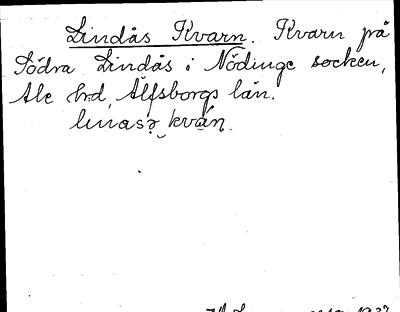 Lindås Kvarn. Kvarn på
Södra Lindås i Nödinge socken,
Ale hd, Älfsborgs län.
kvan.